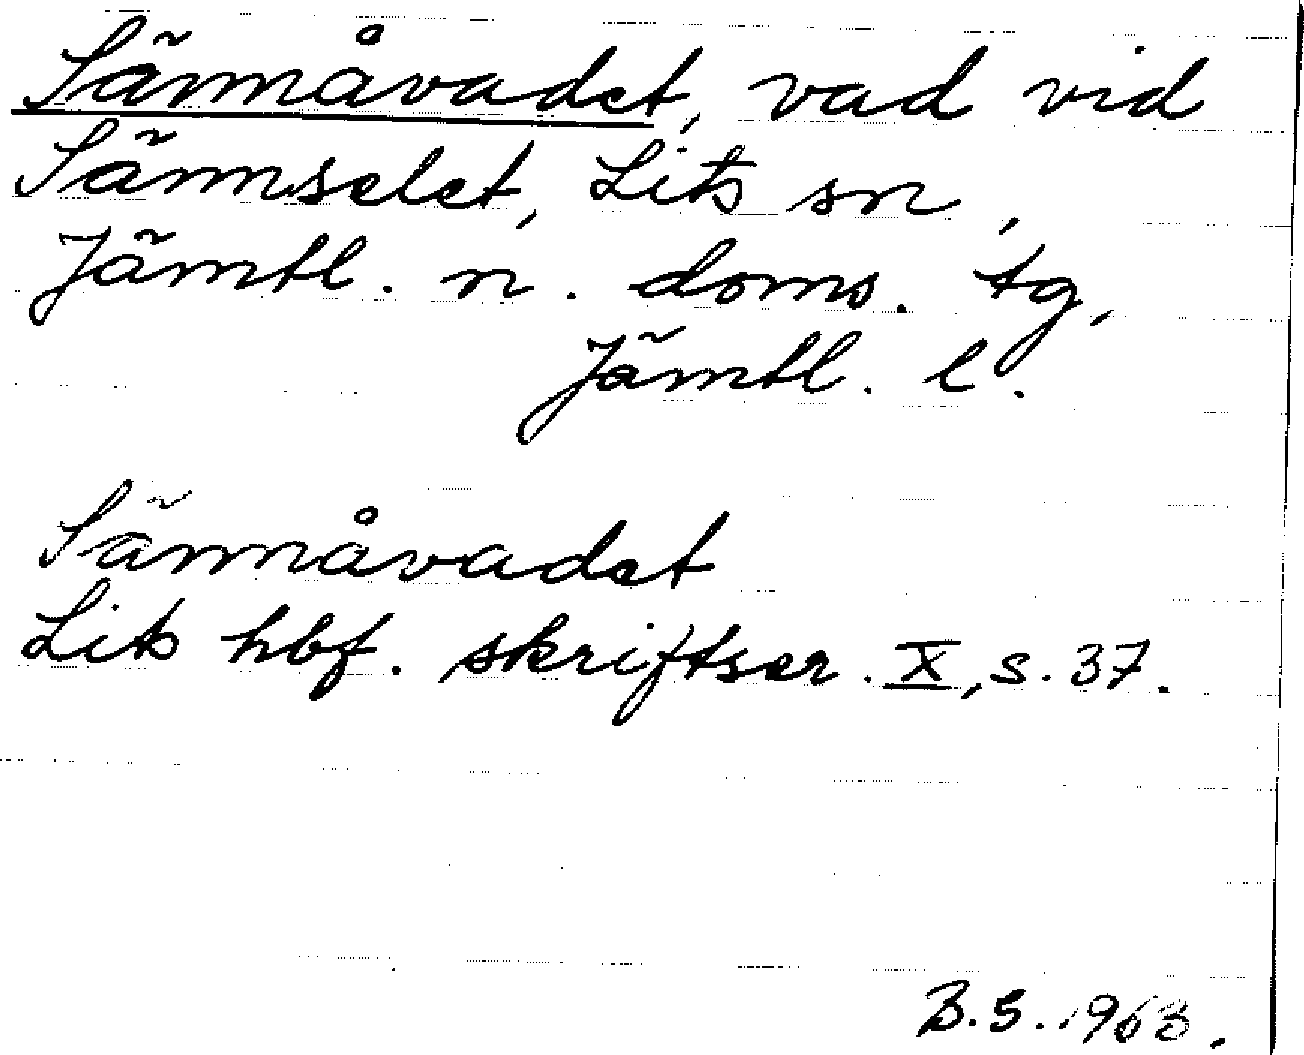 Sännåvadet, vad vid
Sännselet, Lits sn,
Jämtl. n. doms. tg,
Jämtl. l.
Sännåvadet
Lits hbf. skriftser. X, s. 37.
B.S. 1963.